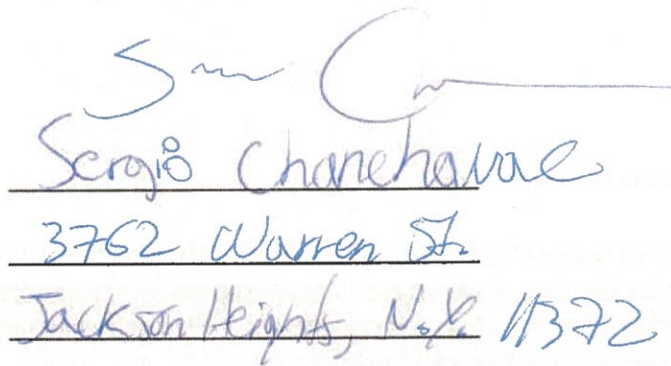 Sergio Chanchavac
3762 Warren St.
Jackson Heights, N.Y. 11372